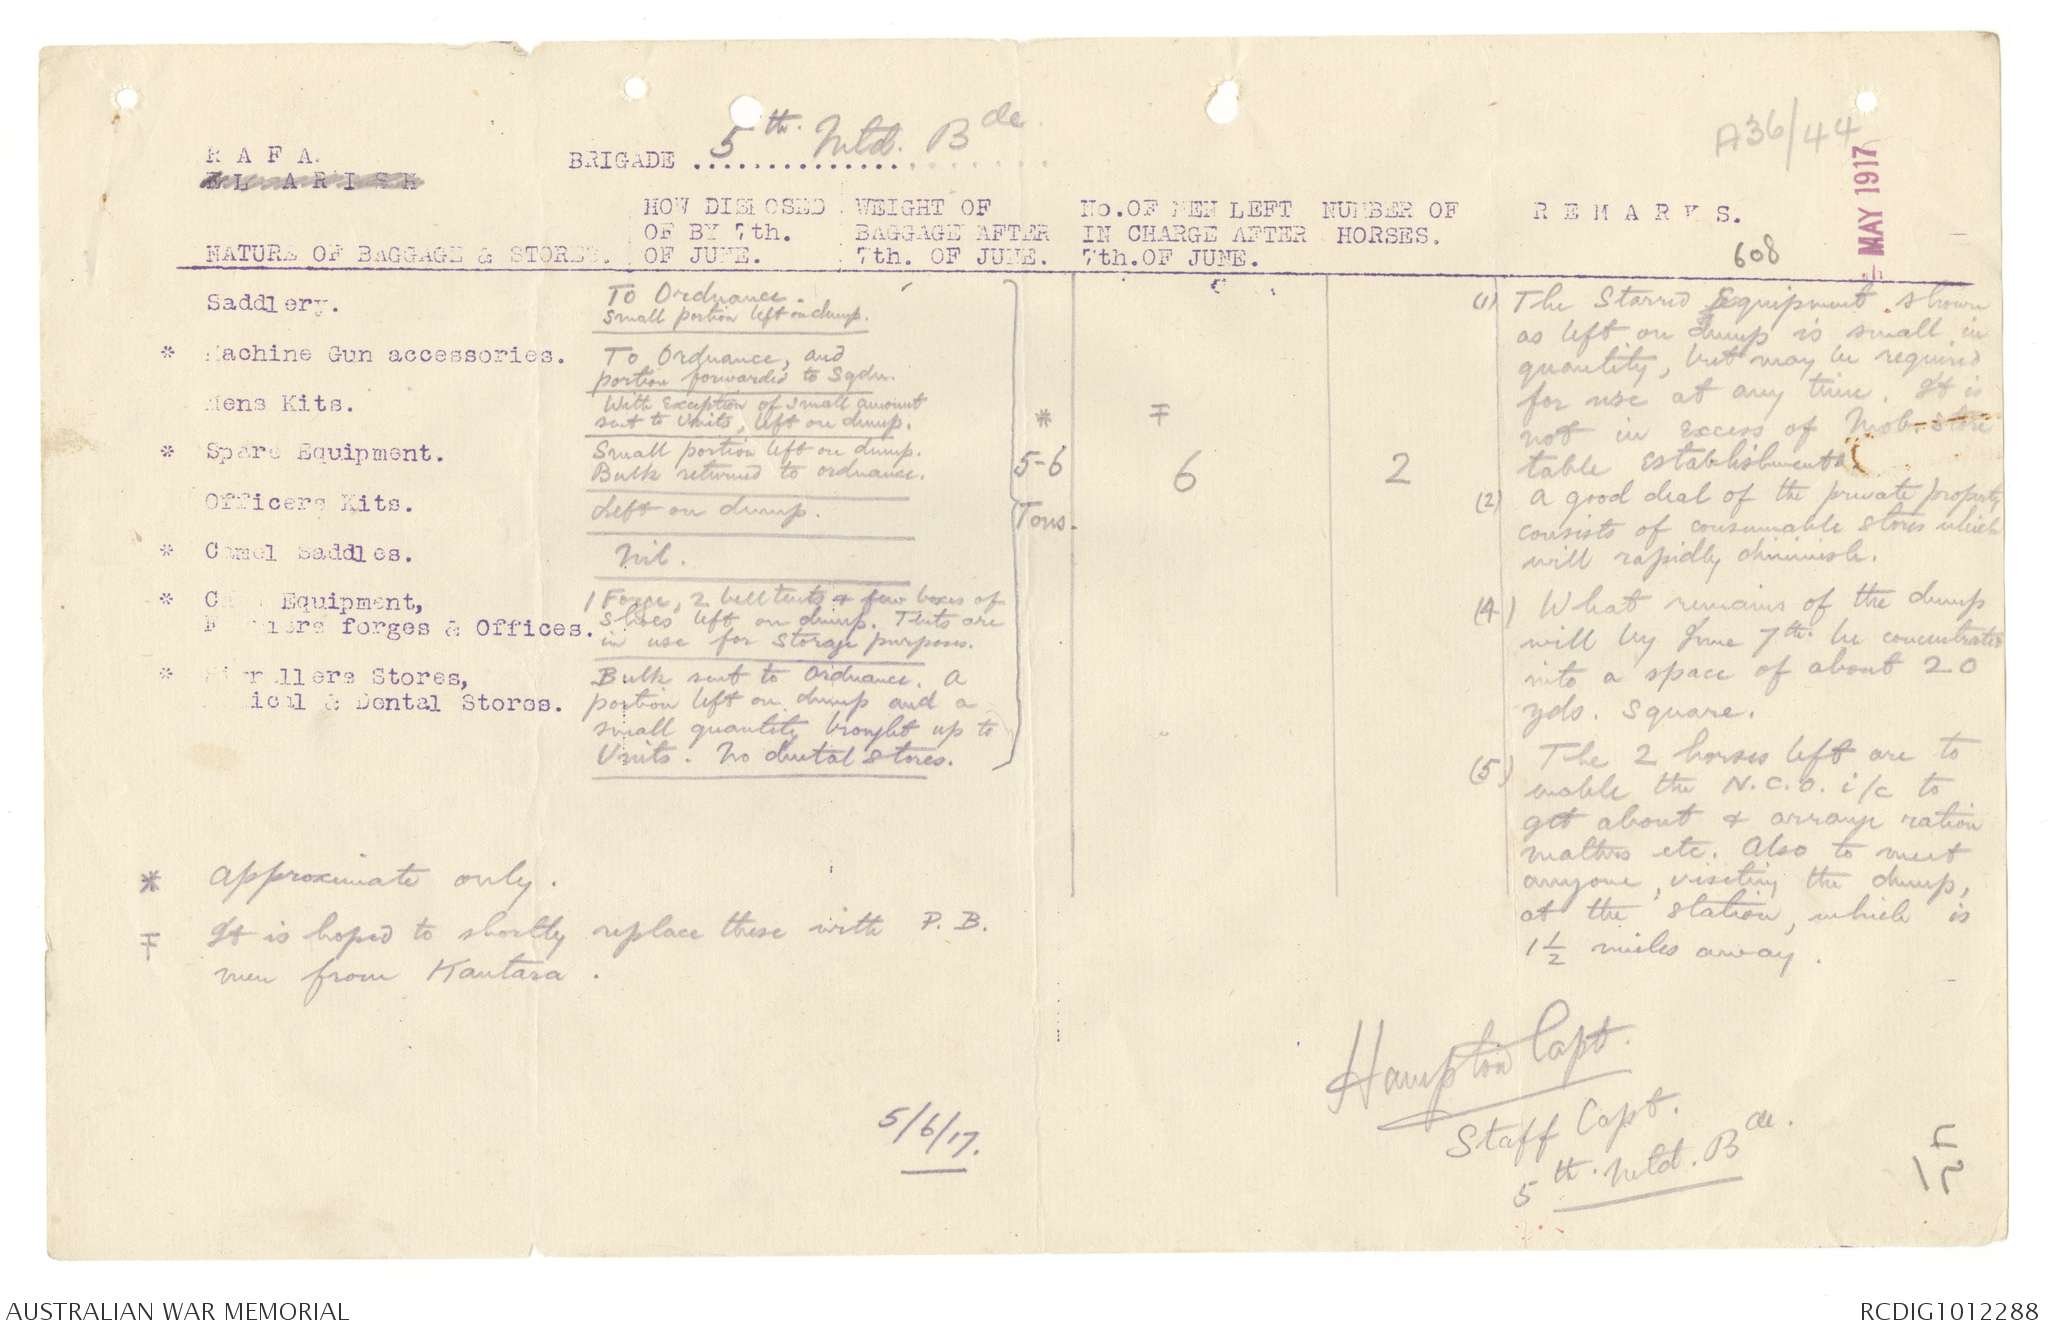 A36/44
MAY 1917
R A F A.
EL ARISH
BRIGADE 5th. Mtd. Bde.
NATURE OF BAGGAGE & STORES.
HOW DISPOSED
OF BY 7th.
OF JUNE.
WEIGHT OF
BAGGAGE AFTER
7th. OF JUNE.
No. OF MEN LEFT
IN CHARGE AFTER
7th. OF JUNE.
NUMBER OF
HORSES.
R E M A R K S.
608
Saddlery.
To Ordnance.
Small portion left on dump.
* Machine Gun accessories.
To Ordnance, and
portion forwarded to Sqdn.
Mens Kits.
With Exception of small amount
sent to Units, left on dump.
* Spare Equipment.
Small portion left on dump.
Bulk returned to ordnance.
Officers Kits.
Left on dump.
* Camel Saddles.
Nil.
* Equipment,
forges & Offices.
1 Forge, 2 belltents & few boxes of
Shoes left on dump. Tents are
in use for Storage purposes.
* Stores,
& Dental Stores.
Bulk sent to Ordnance. A
portion left on dump and a
small quantity brought up to
Units. No dental stores.
*
5-6
Tons.
6
2
(1) The Starred Equipment shown
as left on dump is small in
quantity, but may be required
for use at any time. It is
not in excess of Mob. Store
table establishments.
(2) A good deal of the private property
consists of consumable stores which
will rapidly diminish.
(4) What remains of the dump
will by June 7th. be concentrated
into a space of about 20
yds. Square.
(5) The 2 horses left are to
enable the N.C.O. i/c to
get about & arrange ration
matters etc. Also to meet
anyone, visiting the dump,
at the station, which is
1½ miles away.
* Approximate only.
It is hoped to shortly replace these with P.B.
men from Kantara.
Hampton Capt.
Staff Capt.
5th. Mtd. Bde.
5/6/17.
AUSTRALIAN WAR MEMORIAL
RCDIG1012288